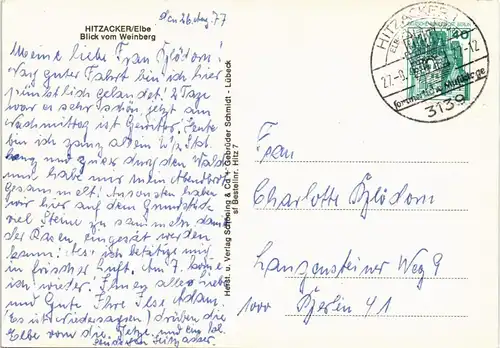 HITZACKER/Elbe
Blick vom Weinberg
den 26. Aug. 77
Meine liebe Frau Klödom!
Nach guter Fahrt bin ich hier
pünktlich gelandet! 2 Tage
war es sehr schön jetzt am
Nachmittag ist Gewitter. Heute
bin ich ganz allein 2 Std.
lang und quer durch den Wald
und habe mir mein Abendbrot
gesammelt! Ansonsten haben
wir hier auf dem Grundstück
viel Steine zu sammeln damit
der Rasen eingesät werden
kann! Also ich betätige mich
in frischer Luft. Am 7. komme
ich wieder. Ihnen alles Liebe
und Gute Ihre Ilse Adam.
(Es ist Niedersachsen) drüben die
Elbe vorn die Jetze und ein
Hitzacker.
Herst. u. Verlag Schöning & Co + Gebrüder Schmidt - Lübeck
Bestellnr. Hitz 7
HITZACKER
27.-8. -12
3139
DEUTSCHE BUNDESPOST BERLIN
40
Frau
Charlotte Klödom
Lanzensteiner Weg 9
1000 Berlin 41